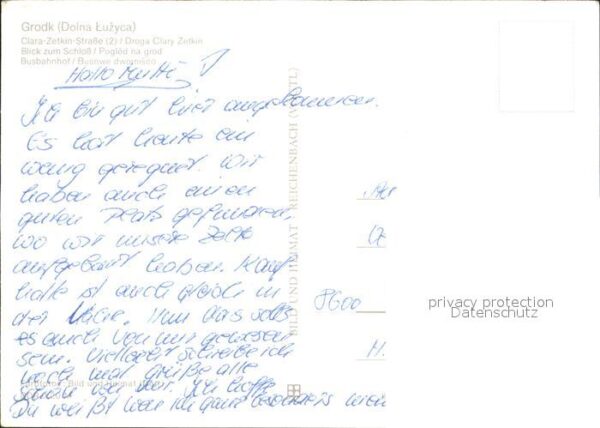 Grodk (Dolna Łužyca)
Clara-Zetkin-Straße (2) / Droga Clary Zetkin
Blick zum Schloß / Pogled na grod
Busbahnhof / Busowe dwornišćo
Hallo Mutti!
Ich bin gut hier angekommen.
Es hat heute ein
wenig geregnet. Wir
haben auch einen
guten Platz gefunden,
wo wir unsere Zelte
aufgebaut haben. Kauf
halle ist auch gleich in
der Nähe. Nun das solls
es auch von mir gewesen
sein. Vielleicht schreibe ich
noch mal grüße alle
schön von mir. Ich hoffe
Du weißt wen ich ganz besonders mein
An
8600
BILD UND HEIMAT REICHENBACH (VOGTL)
Bild und Heimat
privacy protection
Datenschutz